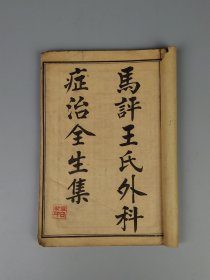 馬評王氏外科
症治全生集